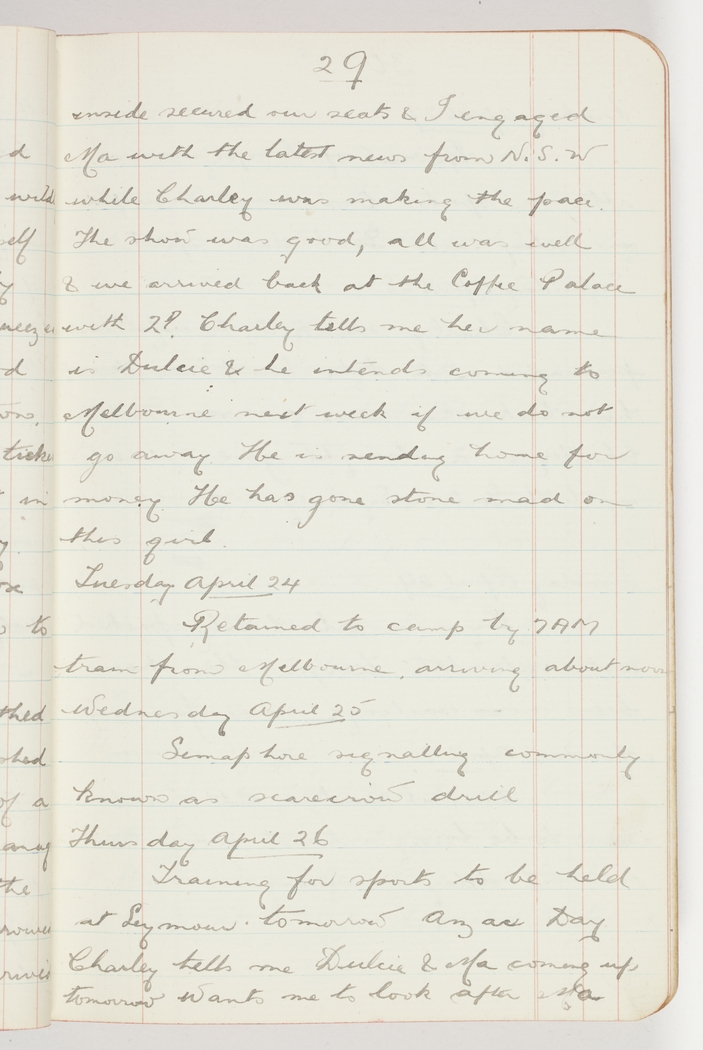 29
inside secured our seats & I engaged
Ma with the latest news from N.S.W
while Charley was making the pace.
The show was good, all was well
& we arrived back at the Coffee Palace
with 2P. Charley tells me her name
is Dulcie & he intends coming to
Melbourne next week if we do not
go away. He is sending home for
money. He has gone stone mad on
this girl.
Tuesday April 24
Retained to camp by 7AM
train from Melbourne, arriving about noon
Wednesday April 25
Semaphore signalling commonly
known as scarecrow drill
Thursday April 26
Training for sports to be held
at Seymour. tomorrow Anzac Day
Charley tells me Dulcie & Ma coming up
tomorrow Wants me to look after Ma
d
wild
self
y
d
ons,
ticke
in
y.
to
shed
of a
the